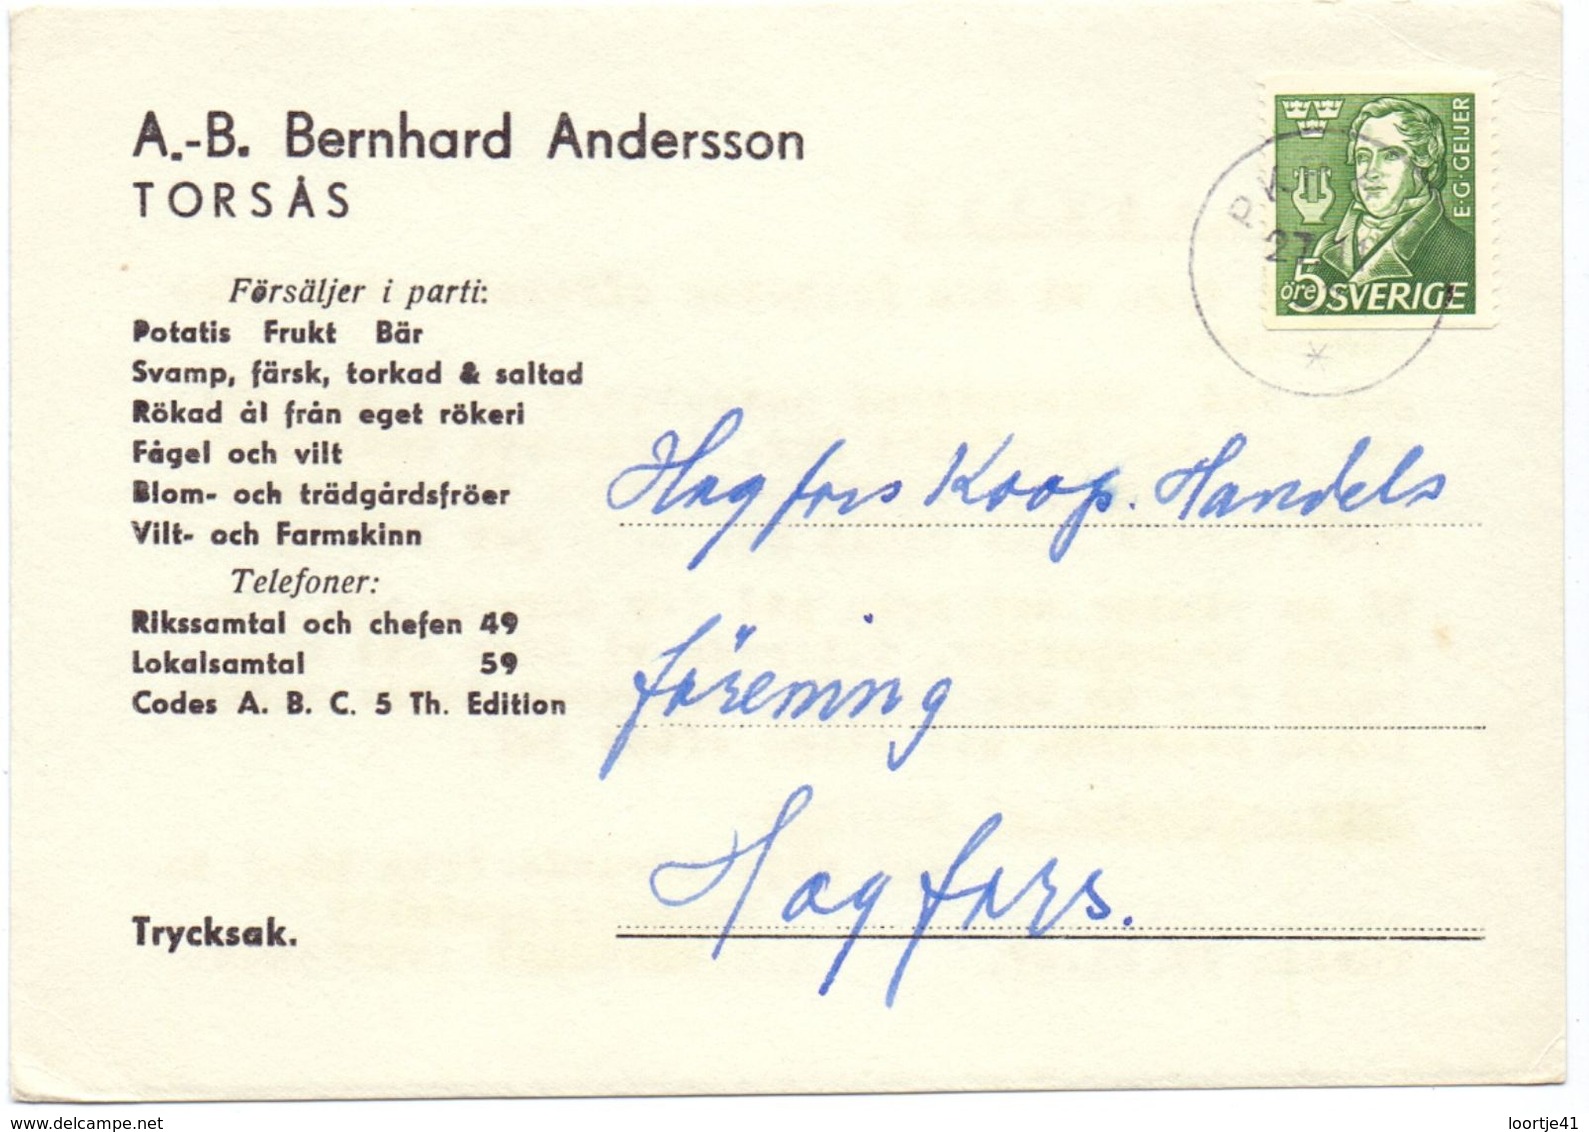 A.-B. Bernhard Andersson
TORSÅS
Försäljer i parti:
Potatis Frukt Bär
Svamp, färsk, torkad & saltad
Rökad ål från eget rökeri
Fågel och vilt
Blom- och trädgårdsfröer
Vilt- och Farmskinn
Telefoner:
Rikssamtal och chefen 49
Lokalsamtal 59
Codes A. B. C. 5 Th. Edition
Trycksak.
E·G·GEIJER
5 öre SVERIGE
27
Hagfors Koop. Handels
förening
Hagfors.
www.delcampe.net
loortje41